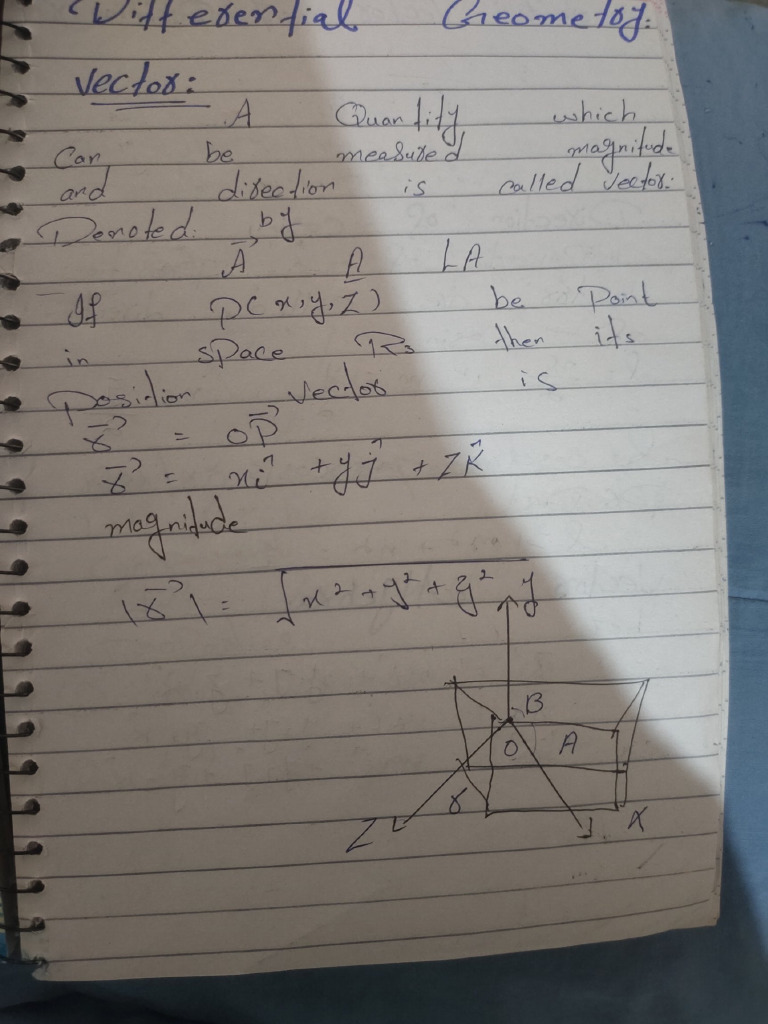 Differential Geometry.
Vector:
A Quantity which
can be measured magnitude
and direction is called vector.
Denoted by
A⃗ A̲ LA
If P(x,y,z) be Point
in space R₃ then its
Position vector is
r⃗ = OP⃗
r⃗ = xi^ + yj^ + zk^
magnitude
|r⃗| = √x² + y² + z²
y
B
O A
γ
Z X